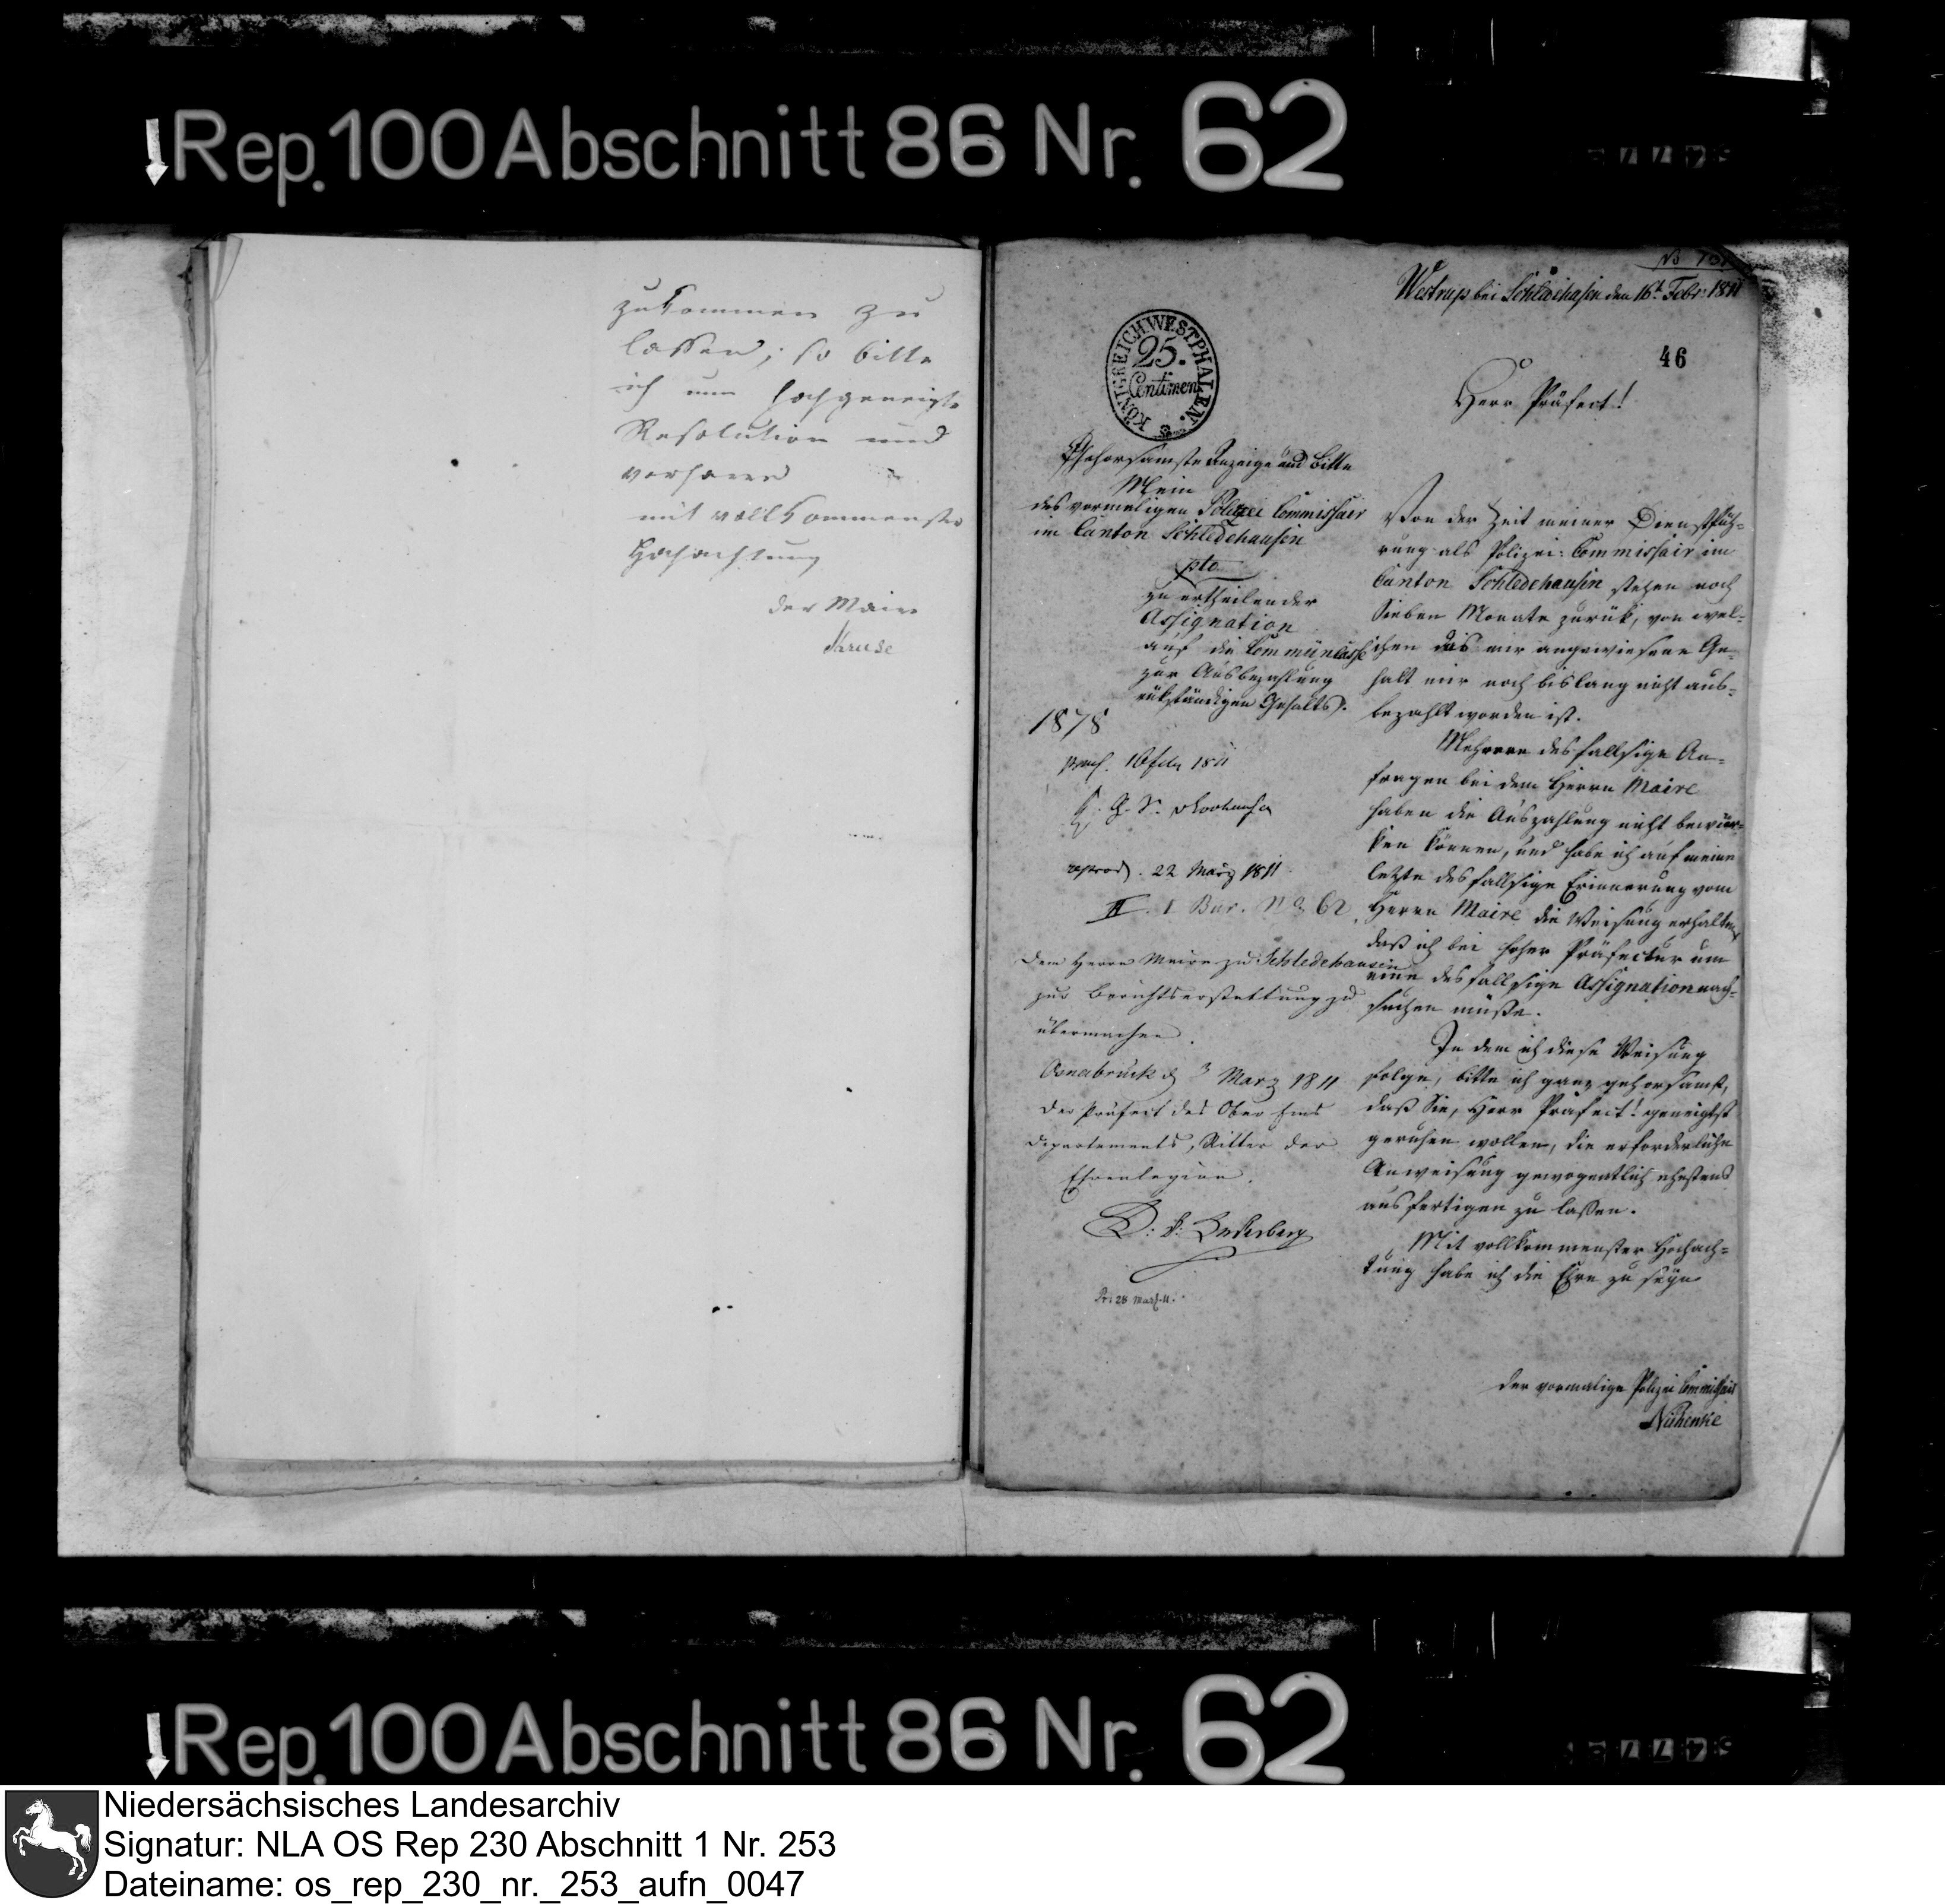 Rep. 100 Abschnitt 86 Nr. 62
zukommen zu
lassen; so bitte
ich um hochgeneigte
Resolution und
verharre
mit vollkommenster
Hochachtung
der Maire
Kruse
Westrup bei Schledehausen den 16t Febr: 1811
46
KÖNIGREICH WESTPHALEN.
25.
Centimen
Herr Präfect!
Gehorsamste Anzeige und Bitte
Mein
des vormaligen Polizei Commissair
im Canton Schledehausen
pto
zu ertheilender
Assignation
auf die Communlasse
zur Ausbezahlung
rükständigen Gehalts.
1878
praes. 18 febr 1811
reprod. 22 März 1811
II. 1 Bur. No 62
Dem Herrn Maire zu Schledehausen
zur Berichtserstattung zu
übermachen.
Osnabrück d 3 März 1811
Der Präfect des Ober Ems
Departements, Ritter der
Ehrenlegion.
28 März 11.
Von der Zeit meiner Dienstfüh=
rung als Polizei: Commissair im
Canton Schledehausen stehen noch
Sieben Monate zurük, von wel=
chen das mir angewiesene Ge=
halt mir noch bislang nicht aus=
bezahlt worden ist.
Mehrere desfallsige An=
fragen bei dem Herrn Maire
haben die Auszahlung nicht bewür=
ken können, und habe ich auf meine
letzte desfallsige Erinnerung vom
Herrn Maire die Weisung erhalten,
daß ich bei hoher Präfectur um
eine desfallsige Assignation nach=
suchen müße.
In dem ich diese Weisung
folge, bitte ich ganz gehorsamst,
daß Sie, Herr Präfect! geneigtst
geruhen wollen, die erforderliche
Anweisung gewogentlich ehestens
ausfertigen zu laßen.
Mit vollkommenster Hochach=
tung habe ich die Ehre zu seyn
der vormalige Polizei Commissair
Rep. 100 Abschnitt 86 Nr. 62
Niedersächsisches Landesarchiv
Signatur: NLA OS Rep 230 Abschnitt 1 Nr. 253
Dateiname: os_rep_230_nr._253_aufn_0047